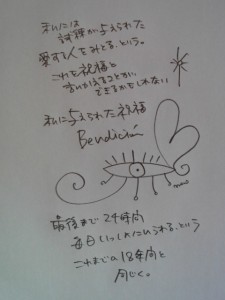 私には
試練が与えられた
愛する人をみとる。という。
これを祝福と
言いかえることが、
できるかもしれない
私に与えられた祝福
Bendición
最後まで24時間
毎日いっしょにいられる。という
これまでの18年間と
同じく。